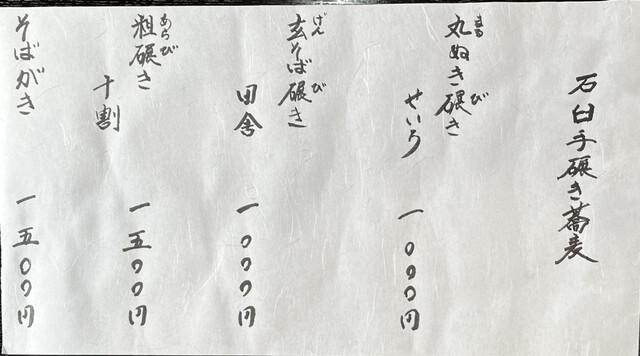 石臼手碾き蕎麦
まる び
丸ぬき碾き
せいろ 一〇〇〇円
げん び
玄そば碾き
田舎 一〇〇〇円
あらび
粗碾き
十割 一五〇〇円
そばがき 一五〇〇円